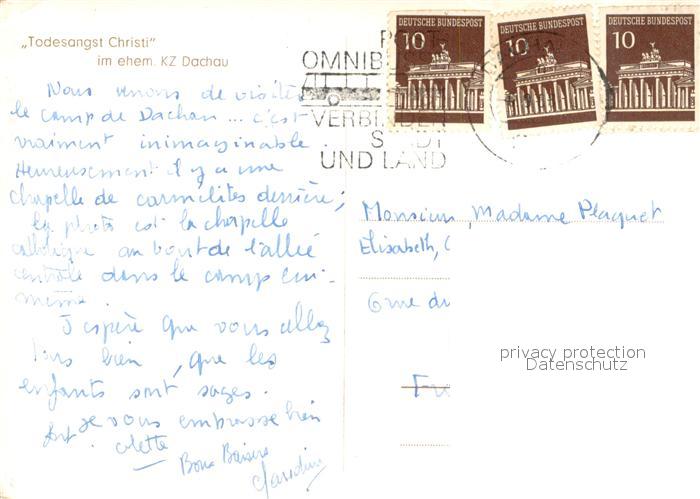 „Todesangst Christi"
im ehem. KZ Dachau
Nous venons de visiter
le camp de Dachau ... c'est
vraiment inimaginable.
Heureusement il y a une
chapelle de carmélites derrière ;
la photo est la chapelle
catholique au bout de l'allée
centrale dans le camp lui-
même.
J'espère que vous allez
tous bien, que les
enfants sont sages.
Je vous embrasse bien
fort. Colette
Bons Baisers
POST
OMNIBUSSE
VERBINDEN
STADT
UND LAND
DEUTSCHE BUNDESPOST
10
DEUTSCHE BUNDESPOST
10
DEUTSCHE BUNDESPOST
10
Monsieur, Madame Plaquet
Elisabeth, C
6 rue du
privacy protection
Datenschutz